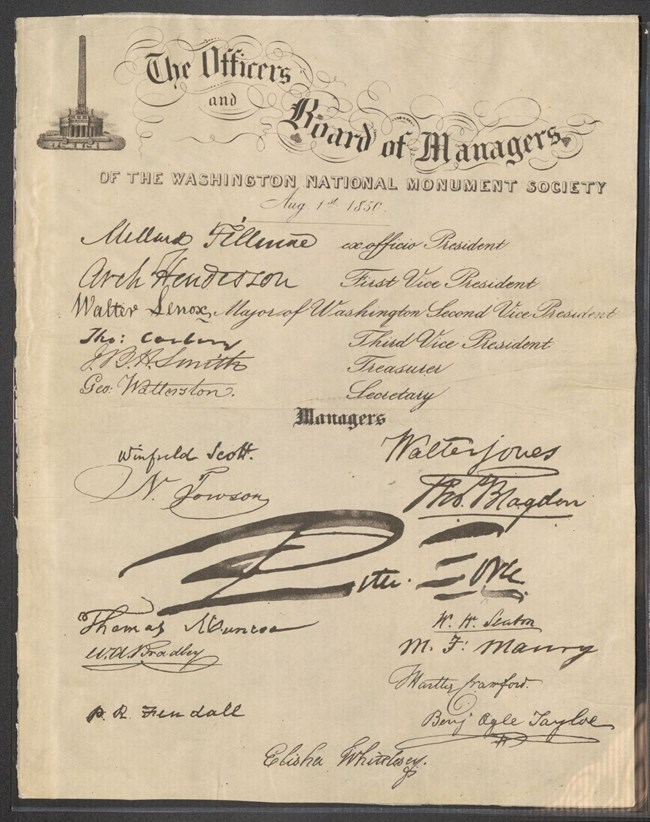 The Officers
and
Board of Managers
OF THE WASHINGTON NATIONAL MONUMENT SOCIETY
Aug 1st 1850
Millard Fillmore ex officio President
Arch Henderson First Vice President
Walter Lenox, Mayor of Washington Second Vice President
Tho: Carbery Third Vice President
J. B. H. Smith Treasurer
Geo: Watterston. Secretary
Managers
Winfield Scott. Walter Jones
N. Towson Tho. Blagden
Peter Force
Thomas Munroe W. W. Seaton
W. A. Bradley M. F. Maury
Crawford.
P. R. Fendall Benj Ogle Tayloe
Elisha Whittlesey.